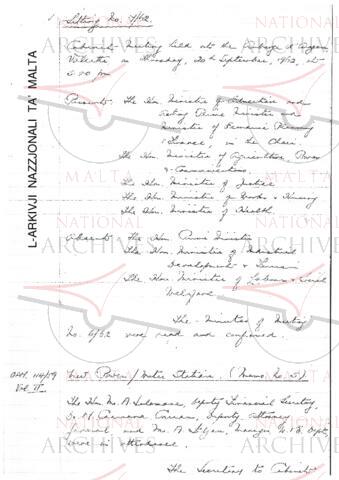 Sitting No. 7/62
Cabinet Meeting held at the Auberge d'Aragon
Valletta on Thursday, 20th September, 1962, at
5.00 pm
Present: The Hon. Minister of Education and
Acting Prime Minister and
Minister of Economic Planning
& Finance, in the Chair
The Hon. Minister of Agriculture, Power
& Communications.
The Hon. Minister of Justice
The Hon. Minister of Works & Housing
The Hon. Minister of Health.
Absent: The Hon. Prime Minister
The Hon. Minister of Industrial
Development & Tourism
The Hon. Minister of Labour & Social
Welfare.
The Minutes of Meeting
No. 6/62 were read and confirmed.
OPM 114/59
Vol. II
Power/Water Station. (Memo. No. 5)
The Hon. Mr. A Salomone, Deputy Financial Secretary,
Deputy Attorney
General and Mr. A Manager W. & E. Dept.
were in attendance.
The Secretary to Cabinet
L-ARKIVJI NAZZJONALI TA' MALTA
NATIONAL
ARCHIVES
MALTA